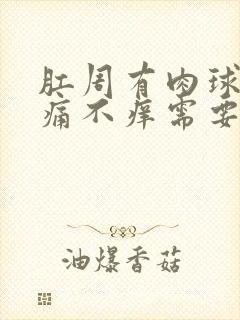 肛周有肉球
痛不痒需要
油爆香菇